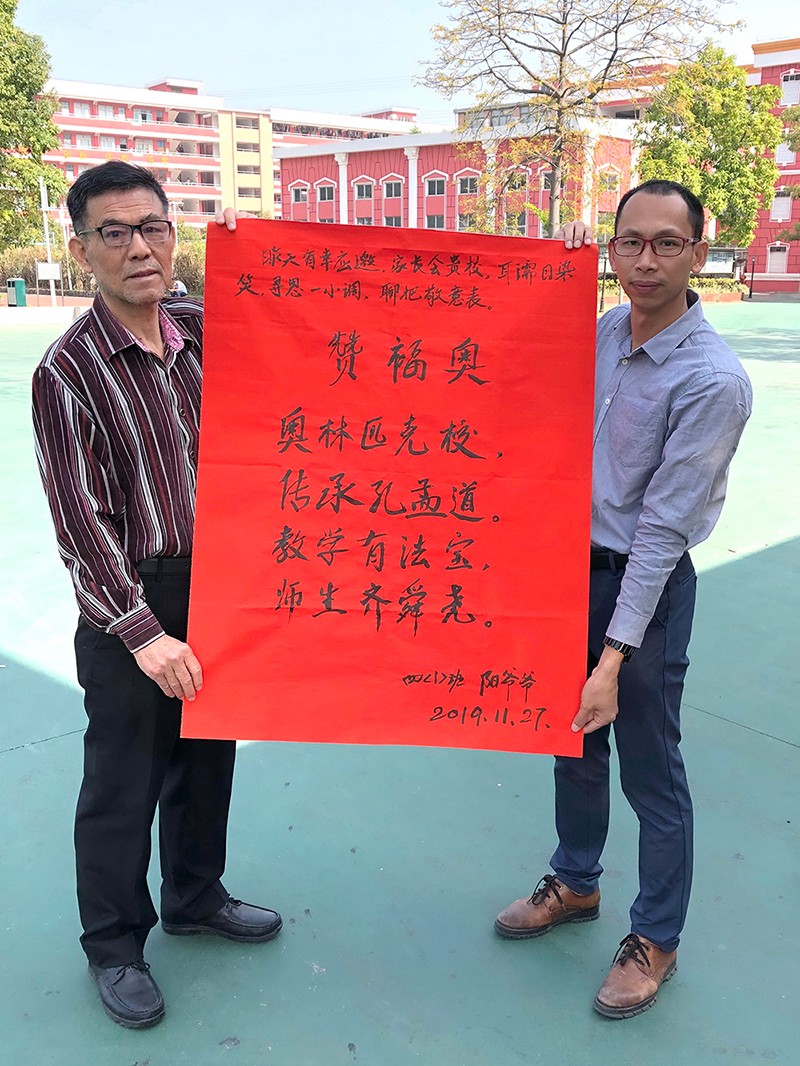 昨天有幸应邀，家长会贵校，耳濡目染
笑，寻思一小调，聊把敬意表。
赞福奥
奥林匹克校，
传承孔孟道。
教学有法宝，
师生齐舜尧。
四〈1〉班 阳爷爷
2019.11.27.